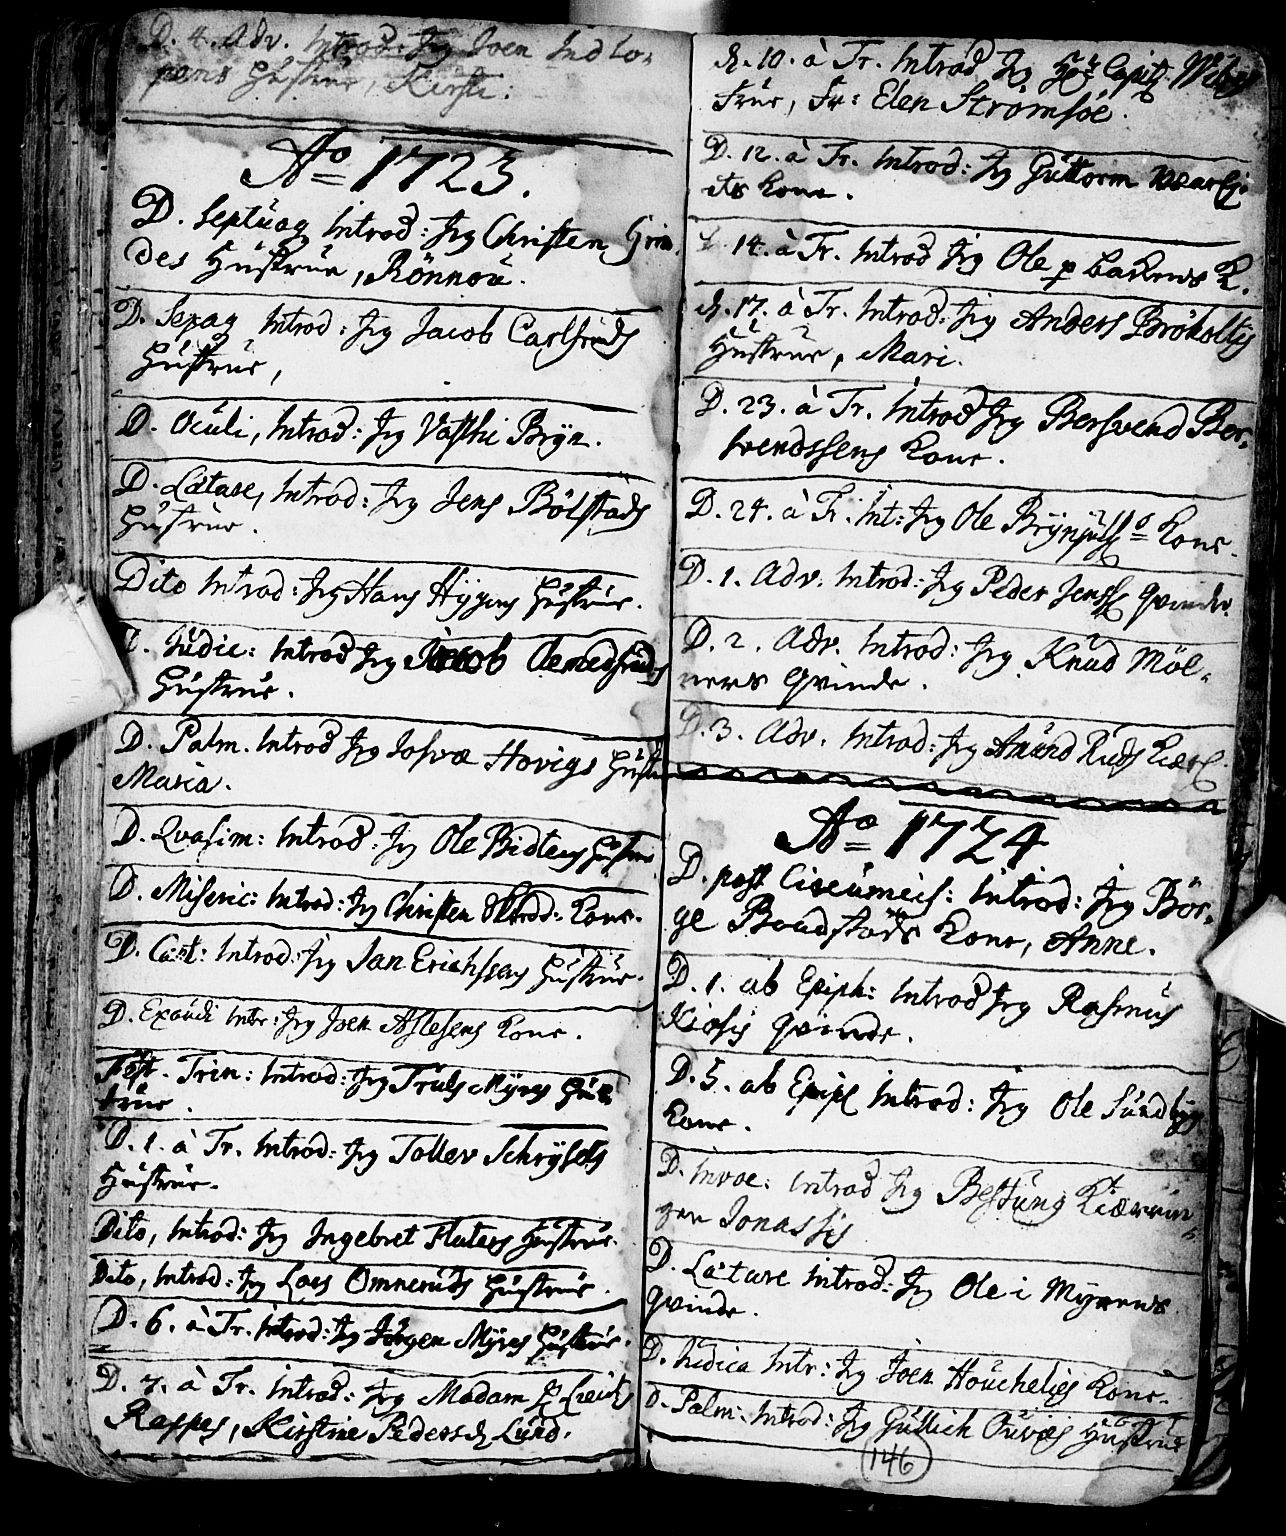 D. 4. Adv. Introd: Jeg Joen Indlo-
pens Hustrue, Kirsti.
Ao 1723.
D. Septuag Introd: Jeg Christen Grin
des Hustrue, Rönnou.
D. Sexag Introd: Jeg Jacob Carlsruds
Hustrue,
D. Oculi, Introd: Jeg Vasthi Bryn.
D. Lætare, Introd: Jeg Jens Bölstads
Hustrue.
Dito Introd: Jeg Hans Hygens Hustrue.
D. Judic: Introd Jeg Jacob
Hustrue.
D. Palm. Introd Jeg Josva Hovigs Hustrue
Maria.
D. Qvasim: Introd: Jeg Ole Bidlens Hustrue
D. Miseric: Introd: Jeg Christen Kone.
D. Cant: Introd: Jeg Jan Erichssens Hustrue.
D. Exaudi Intr: Jeg Joen Aslesens Kone.
Fest. Trin: Introd: Jeg Truls Myres Hus
true.
D. 1. à Tr. Introd: Jeg Tollev Schrysets
Hustrue.
Dito, Introd: Jeg Ingebret Flutes Hustrue.
Dito, Introd: Jeg Lars Omneruds Hustrue.
D. 6. à Tr. Introd: Jeg Jörgen Myres Hustrue.
D. 7. à Tr. Introd: Jeg Madam
Rasses, Kirstine Pedersd. Lund.
D. 10. à Tr. Introd Jeg Hr: Capit.
Frue, Fr: Elen Strömsöe.
D. 12. à Tr. Introd: Jeg Guttorm
Kone.
D. 14. à Tr. Introd Jeg Ole p backens K.
D. 17. à Tr. Introd: Jeg Anders Bröholts
Hustrue, Mari.
D. 23. à Tr. Introd Jeg Bersvend Ber-
svendssens Kone.
D. 24. à Tr. Int: Jeg Ole Brynjulfs Kone.
D. 1. Adv. Introd: Jeg Peder Jenss. Qvinde.
D. 2. Adv. Introd: Jeg Knud Möl-
ners Qvinde.
D. 3. Adv. Introd: Jeg Amund Ruds Kiær.
Ao 1724
D. post Circumcis: Introd: Jeg Bör-
ge Boadstads Kone, Anne.
D. 1. ab Epiph: Introd Jeg Rasmus
Kiøsis Qvinde.
D. 5. ab Epiph Introd: Jeg Ole Sundbys
Kone.
D. Invoc: Introd Jeg Kiærrin
gen Jonassis
D. Lætare Introd: Jeg Ole i Myrens
Qvinde.
D. Judica Intr: Jeg Joen Houcheliés Kone.
D. Palm: Introd: Jeg Gullich Ouræs Hustrue
146